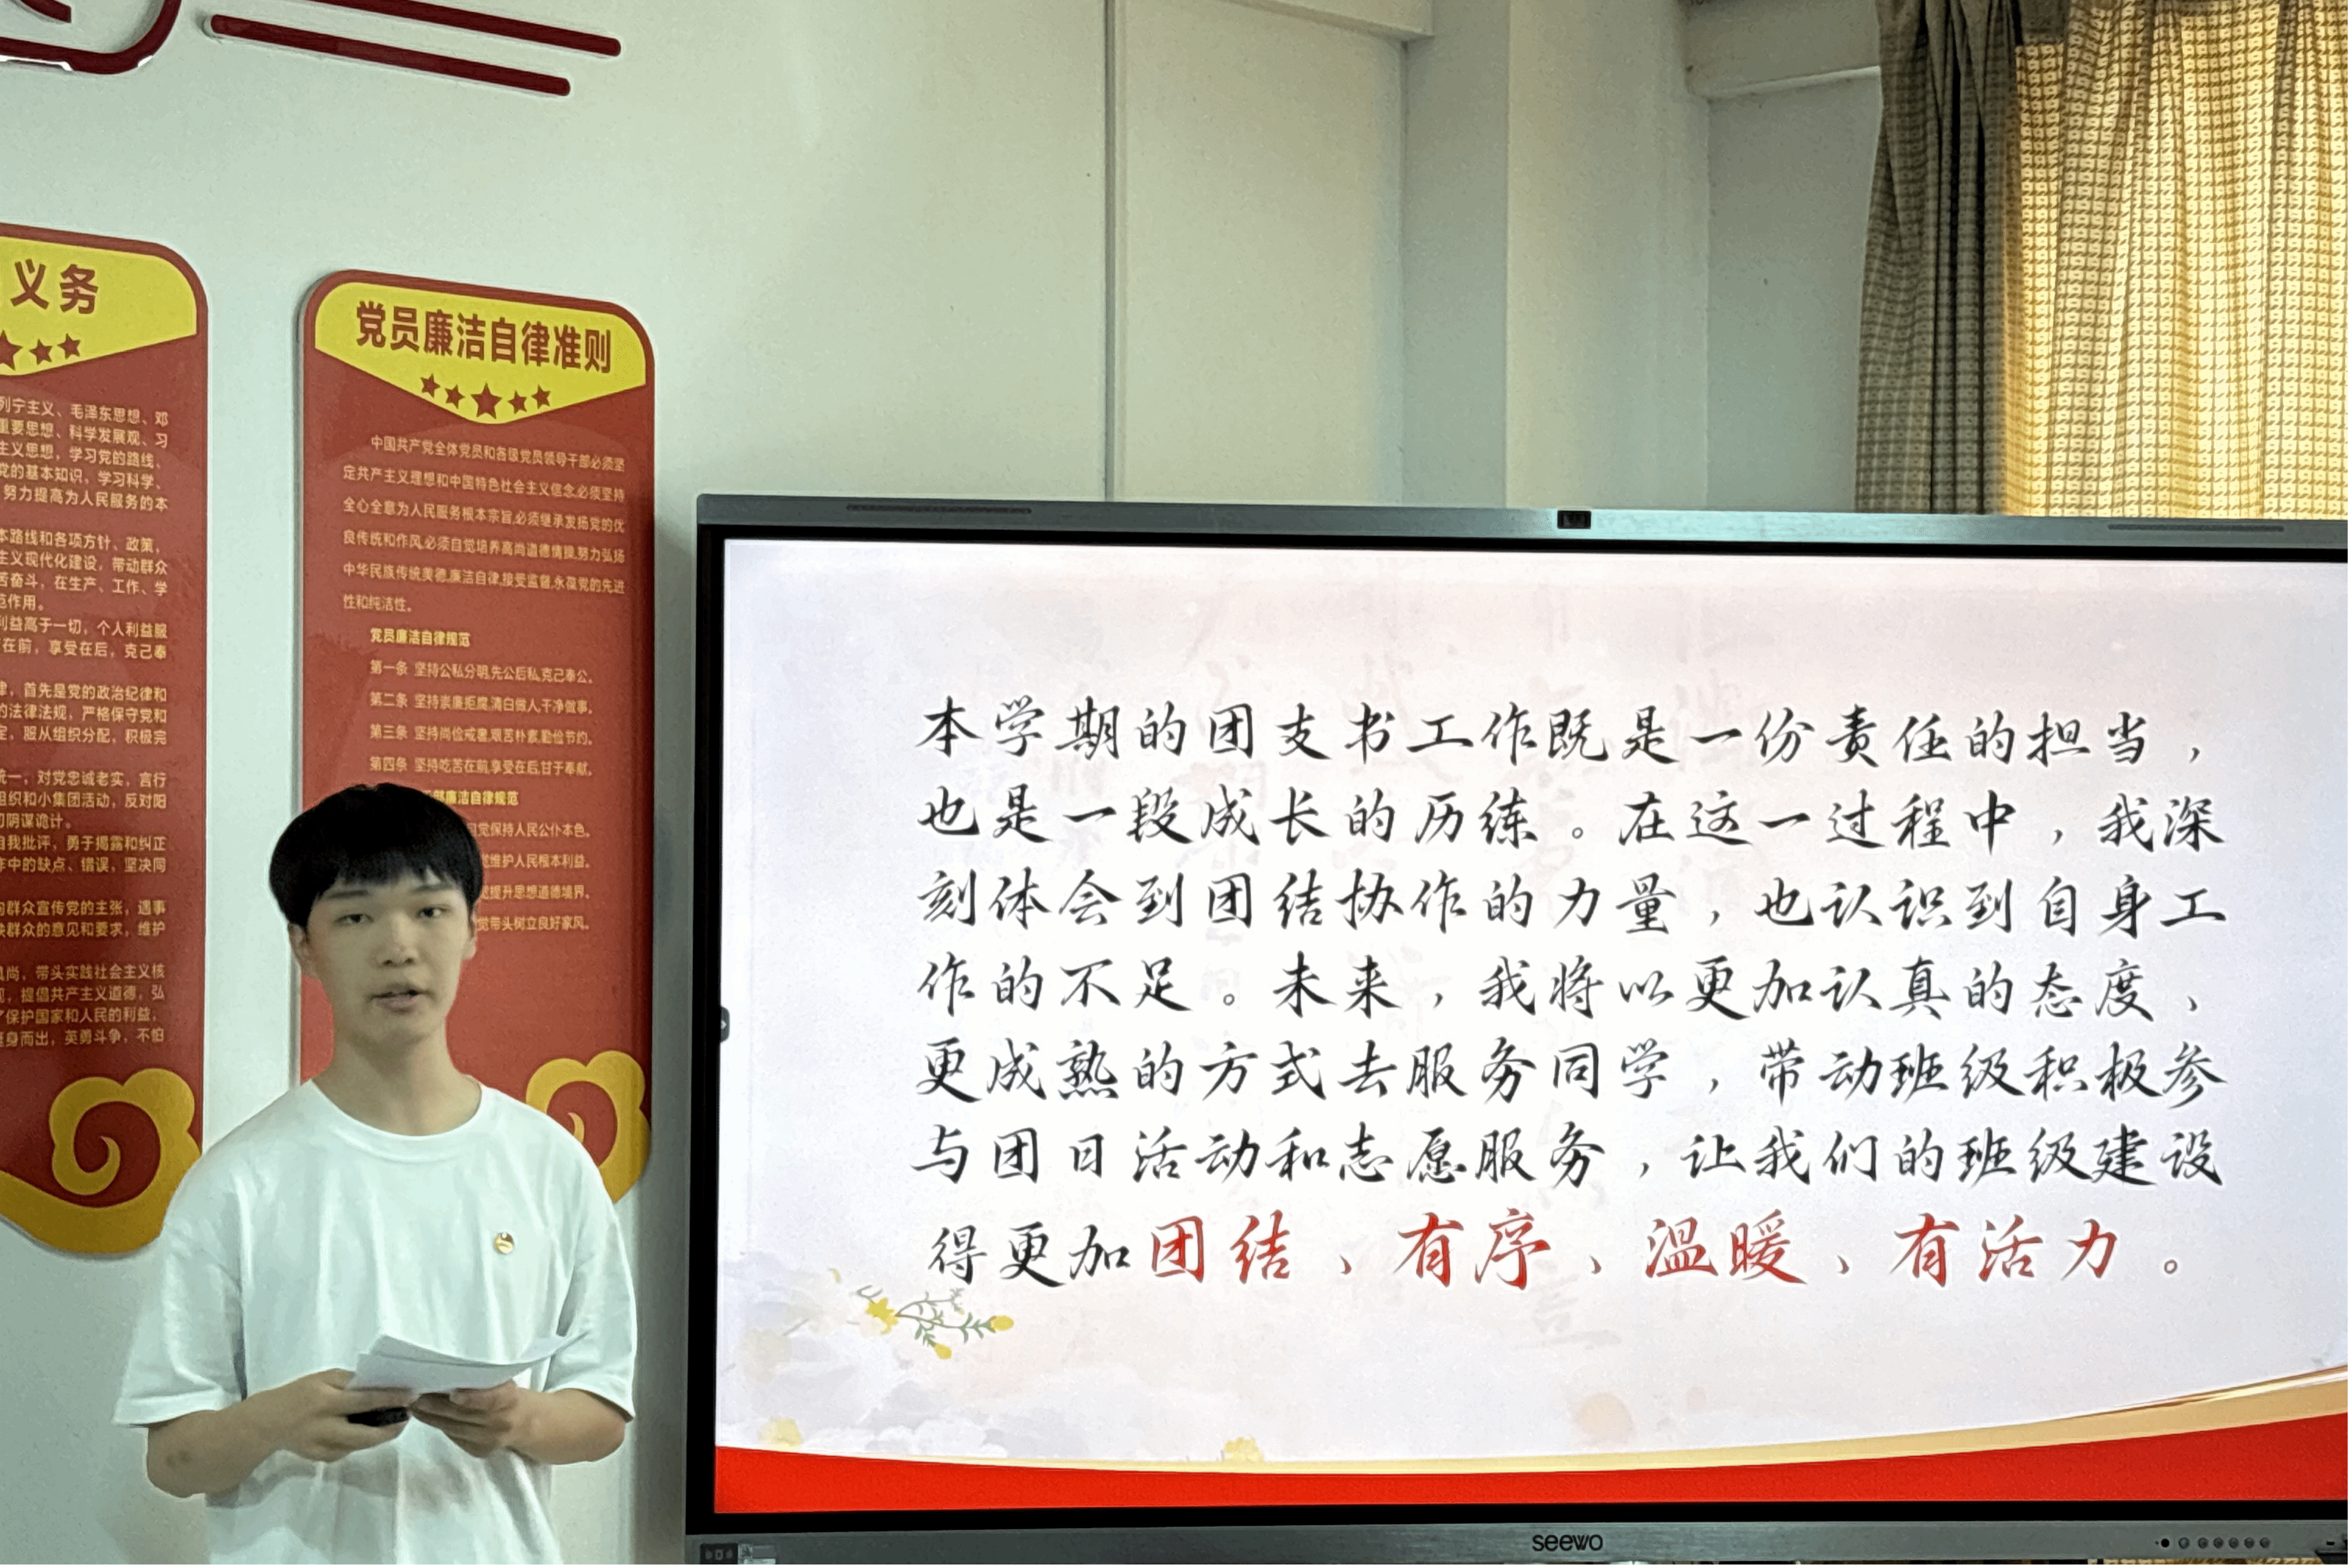 义务
列宁主义、毛泽东思想、邓
重要思想、科学发展观、习
主义思想，学习党的路线、
党的基本知识，学习科学、
努力提高为人民服务的本
本路线和各项方针、政策，
主义现代化建设，带动群众
苦奋斗，在生产、工作、学
范作用。
利益高于一切，个人利益服
在前，享受在后，克己奉
律，首先是党的政治纪律和
的法律法规，严格保守党和
定，服从组织分配，积极完
统一，对党忠诚老实，言行
组织和小集团活动，反对阳
切阴谋诡计。
自我批评，勇于揭露和纠正
作中的缺点、错误，坚决同
向群众宣传党的主张，遇事
映群众的意见和要求，维护
风尚，带头实践社会主义核
观，提倡共产主义道德，弘
了保护国家和人民的利益，
挺身而出，英勇斗争，不怕
党员廉洁自律准则
中国共产党全体党员和各级党员领导干部必须坚
定共产主义理想和中国特色社会主义信念,必须坚持
全心全意为人民服务根本宗旨,必须继承发扬党的优
良传统和作风,必须自觉培养高尚道德情操,努力弘扬
中华民族传统美德,廉洁自律,接受监督,永葆党的先进
性和纯洁性。
党员廉洁自律规范
第一条 坚持公私分明,先公后私,克己奉公。
第二条 坚持崇廉拒腐,清白做人,干净做事。
第三条 坚持尚俭戒奢,艰苦朴素,勤俭节约。
第四条 坚持吃苦在前,享受在后,甘于奉献。
部廉洁自律规范
觉保持人民公仆本色。
觉维护人民根本利益。
觉提升思想道德境界。
觉带头树立良好家风。
本学期的团支书工作既是一份责任的担当，
也是一段成长的历练。在这一过程中，我深
刻体会到团结协作的力量，也认识到自身工
作的不足。未来，我将以更加认真的态度、
更成熟的方式去服务同学，带动班级积极参
与团日活动和志愿服务，让我们的班级建设
得更加团结、有序、温暖、有活力。
seewo